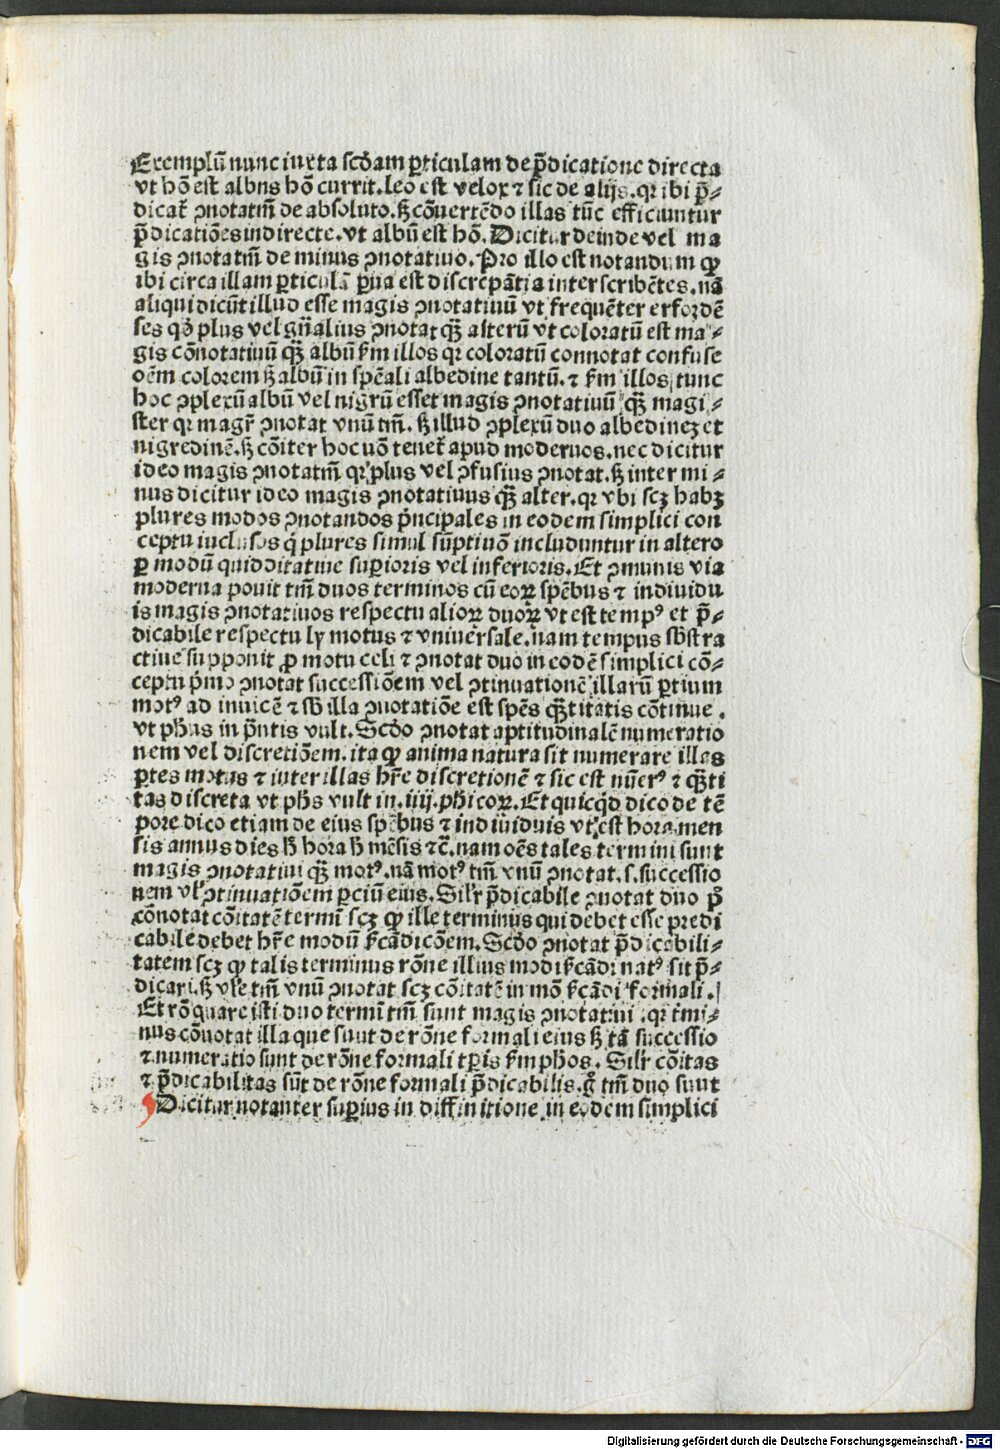 Exemplū nunc iuxta scḋam ꝑticulam de p̄dicatione directa
vt hō est albus hō currit. leo est velox ⁊ sic de alijs. qꝛ ibi p̄⸗
dicat̉ ꝯnotatiū de absoluto. sꝫ cōuertēdo illas tūc efficiuntur
p̄dicatiōes indirecte. vt albū est hō. Dicitur deinde vel ma
gis ꝯnotatiū de minus ꝯnotatiuo. Pro illo est notandum ꝙ
ibi circa illam ꝑticulā ꝑua est discrepātia inter scribētes. nā
aliqui dicūt illud esse magis ꝯnotatiuū vt frequēter erfordē
ses qḋ plus vel gn̄alius ꝯnotat qꝫ̄ alterū vt coloratū est ma⸗
gis cōnotatiuū qꝫ̄ albū ẜm illos qꝛ coloratū connotat confuse
oēm colorem sꝫ albū in spēali albedine tantū. ⁊ ẜm illos tunc
hoc ꝯplexū albū vel nigrū esset magis ꝯnotatiuū qꝫ̄ magi⸗
ster qꝛ magr̄ ꝯnotat vnū tm̄. sꝫ illud ꝯplexū duo albedineꝫ et
nigredinē. sꝫ cōiter hoc uō tenet̉ apud modernos. nec dicitur
ideo magis ꝯnotatiū qꝛ plus vel ꝯfusius ꝯnotat. sꝫ inter mi⸗
nus dicitur ideo magis ꝯnotatiuus qꝫ̄ alter. qꝛ vbi scꝫ habꝫ
plures modos ꝯnotandos pͥncipales in eodem simplici con
ceptu inclusos qͥ plures simul sūptiuō includuntur in altero
ꝑ modū quidditatiue suꝑioris vel inferioris. Et ꝯmunis via
moderna ponit tm̄ duos terminos cū eoꝝ spēbus ⁊ indiuidu
is magis ꝯnotatiuos respectu alioꝝ duoꝝ vt est tempꝰ et p̄⸗
dicabile respectu ly motus ⁊ vniuersale. nam tempus sb̄stra
ctiue supponit ꝓ motu celi ⁊ ꝯnotat duo in eodē simplici cō⸗
ceptu pͥmo ꝯnotat successiōem vel ꝯtinuationē illarū ꝑtium
motꝰ ad inuicē ⁊ sb̄ illa ꝯnotatiōe est spēs qꝫ̄titatis cōtinue.
vt ph̄us in p̄ntis vult. Scḋo ꝯnotat aptitudinalē numeratio
nem vel discretiōem. ita ꝙ anima natura sit numerare illas
ꝑtes motus ⁊ inter illas hr̄e discretionē ⁊ sic est nūerꝰ ⁊ qꝫ̄ti
tas discreta vt ph̄s vult in .iiij. ph̄icoꝝ. Et quicqͥd dico de tē
pore dico etiam de eius spēbus ⁊ indiuiduis vt est hora men
sis annus dies h̄ hora h̄ mēsis ⁊c̄. nam oēs tales termini sunt
magis ꝯnotatiui qꝫ̄ motꝰ. nā motꝰ tm̄ vnū ꝯnotat. s. successio
nem vl̓ ꝯtinuatiōem ꝑciū eius. Sil̓r p̄dicabile ꝯnotat duo pͥ
cōnotat cōitatē termī scꝫ ꝙ ille terminus qui debet esse predi
cabile debet hr̄e modū ẜcādicōem. Scḋo ꝯnotat p̄dicabili⸗
tatem scꝫ ꝙ talis terminus rōne illius modi ẜcādi natꝰ sit p̄⸗
dicari. sꝫ vl̓e tm̄ vnū ꝯnotat scꝫ cōitatē in mō ẜcādi formali.
Et rō quare isti duo termī tm̄ sunt magis ꝯnotatiui. qꝛ t̉mi⸗
nus cōnotat illa que sunt de rōne formali eius sꝫ tā successio
⁊ numeratio sunt de rōne formali tꝑis ẜm ph̄os. Sil̓r cōitas
⁊ p̄dicabilitas sūt de rōne formali p̄dicabilis. gͦ tm̄ duo sunt
Dicitur notanter suꝑius in diffinitione in eodem simplici
Digitalisierung gefördert durch die Deutsche Forschungsgemeinschaft - DFG